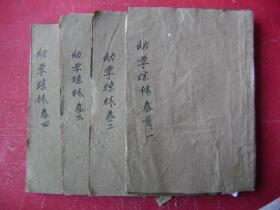 幼学琼林卷首一
幼学琼林卷二
幼学琼林卷三
幼学琼林卷四